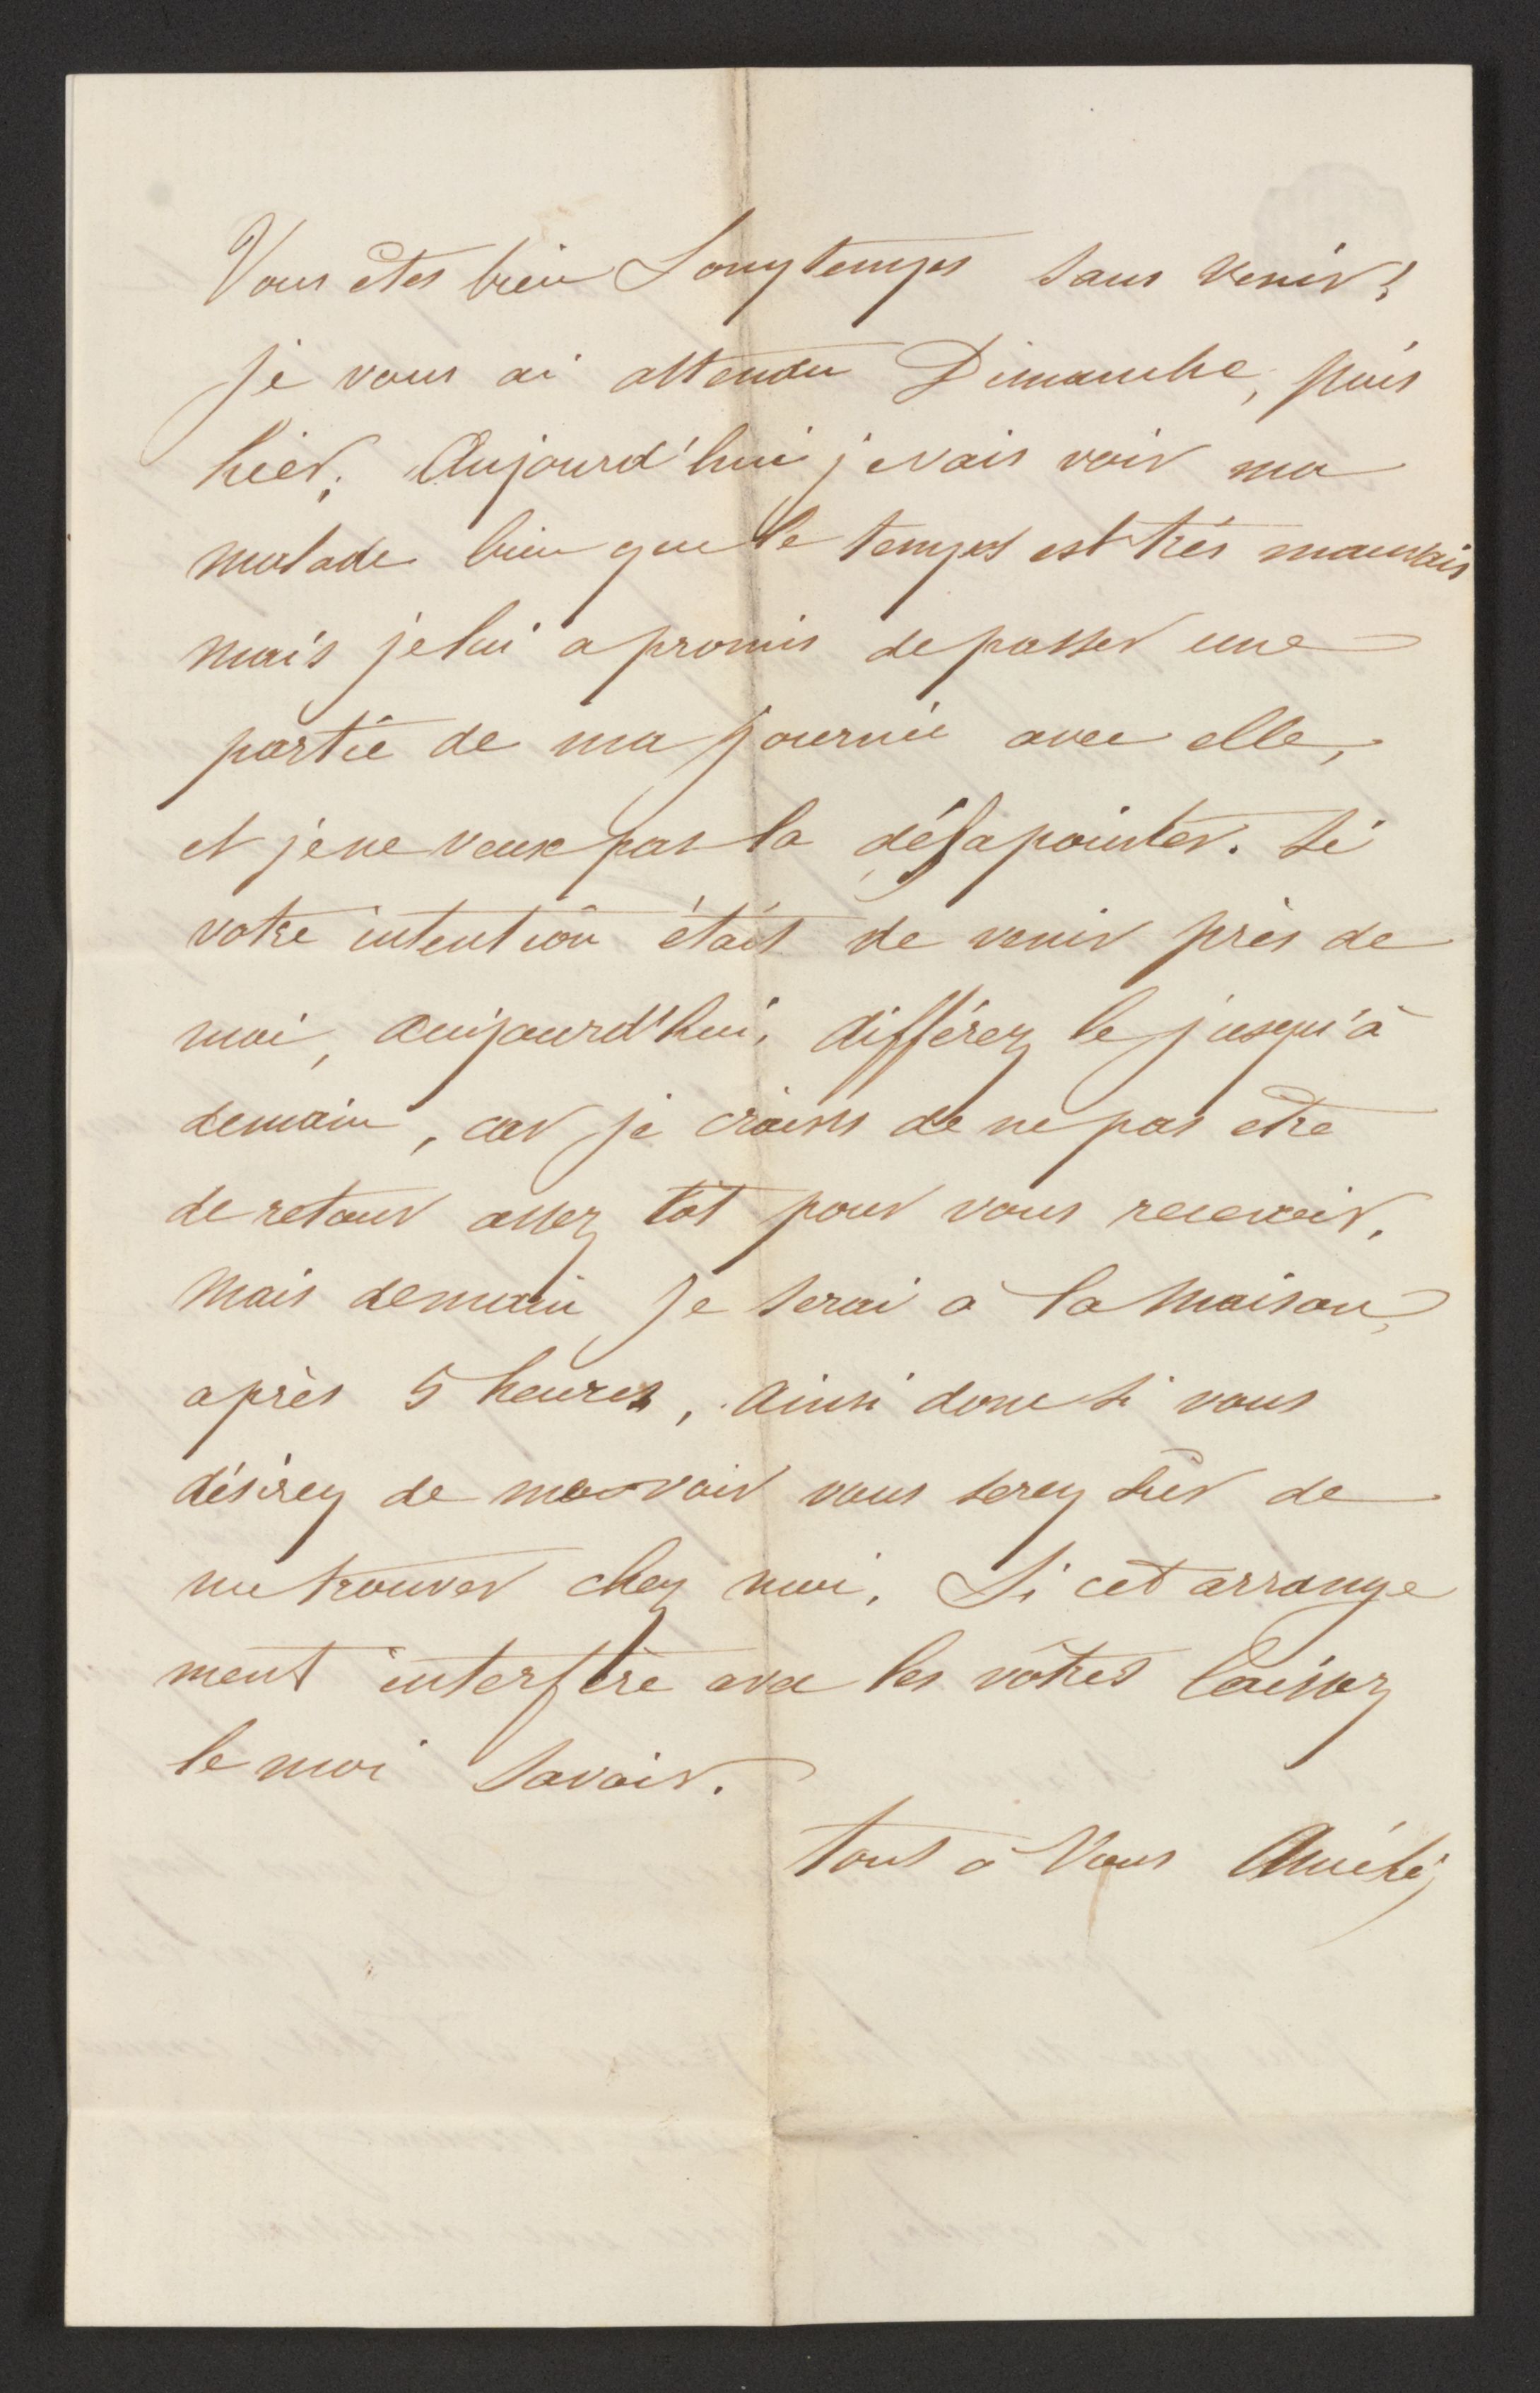 Vous êtes bien Longtemps sans venir!
je vous ai attendu Dimanche, puis
hier; Aujourd'hui je vais voir ma
malade bien que le temps est très mauvais
mais je lui a promis de passer une
partie de ma journée avec elle,
et je ne veux pas la désapointer. Si
votre intention était de venir près de
moi, aujourd'hui, différez le jusqu'à
demain, car je crains de ne pas etre
de retour assez tôt pour vous recevoir.
Mais demain je serai à la Maison,
après 5 heures, ainsi donc si vous
désirez de me voir vous serez sûr de
me trouver chez moi. Si cet arrange
ment interfère avec les vôtres laissez
le moi savoir.
tout à Vous